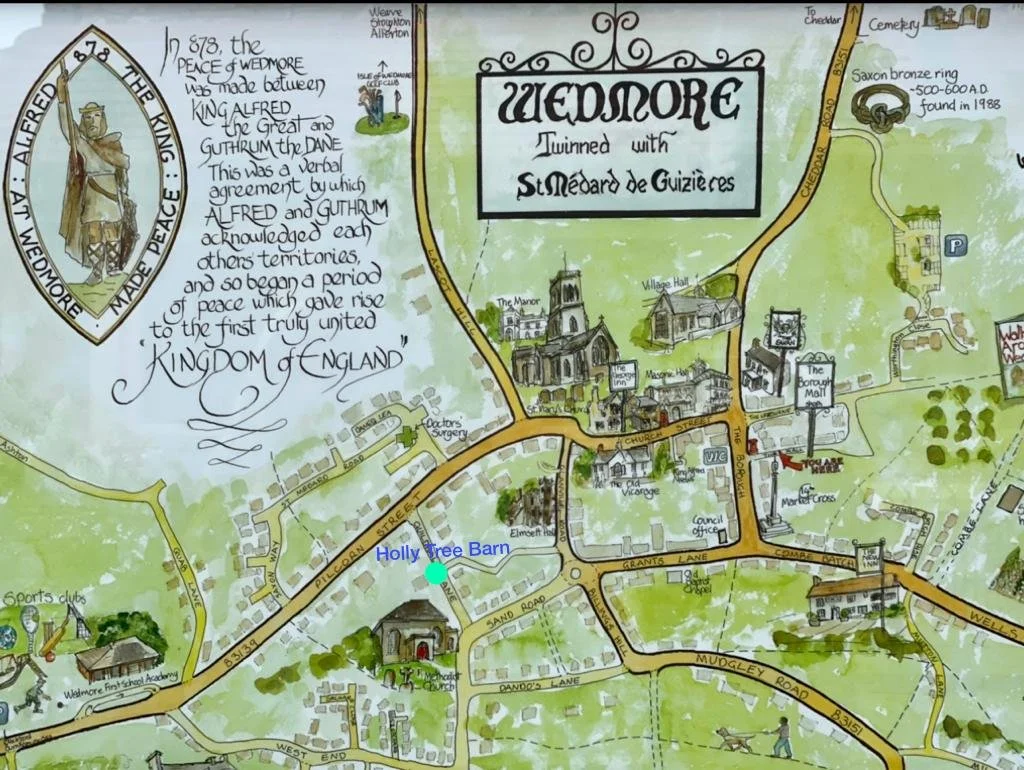 878
ALFRED THE KING : AT WEDMORE : MADE PEACE
In 878, the
PEACE of WEDMORE
was made between
KING ALFRED
the Great and
GUTHRUM the DANE
This was a verbal
agreement by which
ALFRED and GUTHRUM
acknowledged each
others territories,
and so began a period
of peace which gave rise
to the first truly united
"KINGDOM of ENGLAND"
Weare
Stoughton
Allerton
ISLE of WEDMORE
GOLF CLUB
WEDMORE
Twinned with
St Médard de Guizières
To
Cheddar
Cemetery
B3151
CHEDDAR ROAD
Saxon bronze ring
~500-600 A.D.
found in 1988
P
LASCOT HILL
The Manor
Village Hall
St Mary's Church
The
George
Inn
Masonic Hall
SWAN
The
Borough
Mall
shops
Close
CHURCH STREET
THE BOROUGH
YOU ARE
HERE
14th
Market Cross
The Old
Vicarage
Doctors
Surgery
ST MEDARD ROAD
SAXON WAY
Ashton
QUAB LANE
PILCORN STREET
B3139
Elmsett Hall
Council
office
GRANTS LANE
COMBE BATCH
COMBE LANE
WELLS
Holly Tree Barn
LANE
Baptist
Chapel
SAND ROAD
BILLINGS HILL
MUDGLEY ROAD
B3151
DANDO'S LANE
Methodist
Church
Sports clubs
Wedmore First School Academy
WEST END
LANE
INN